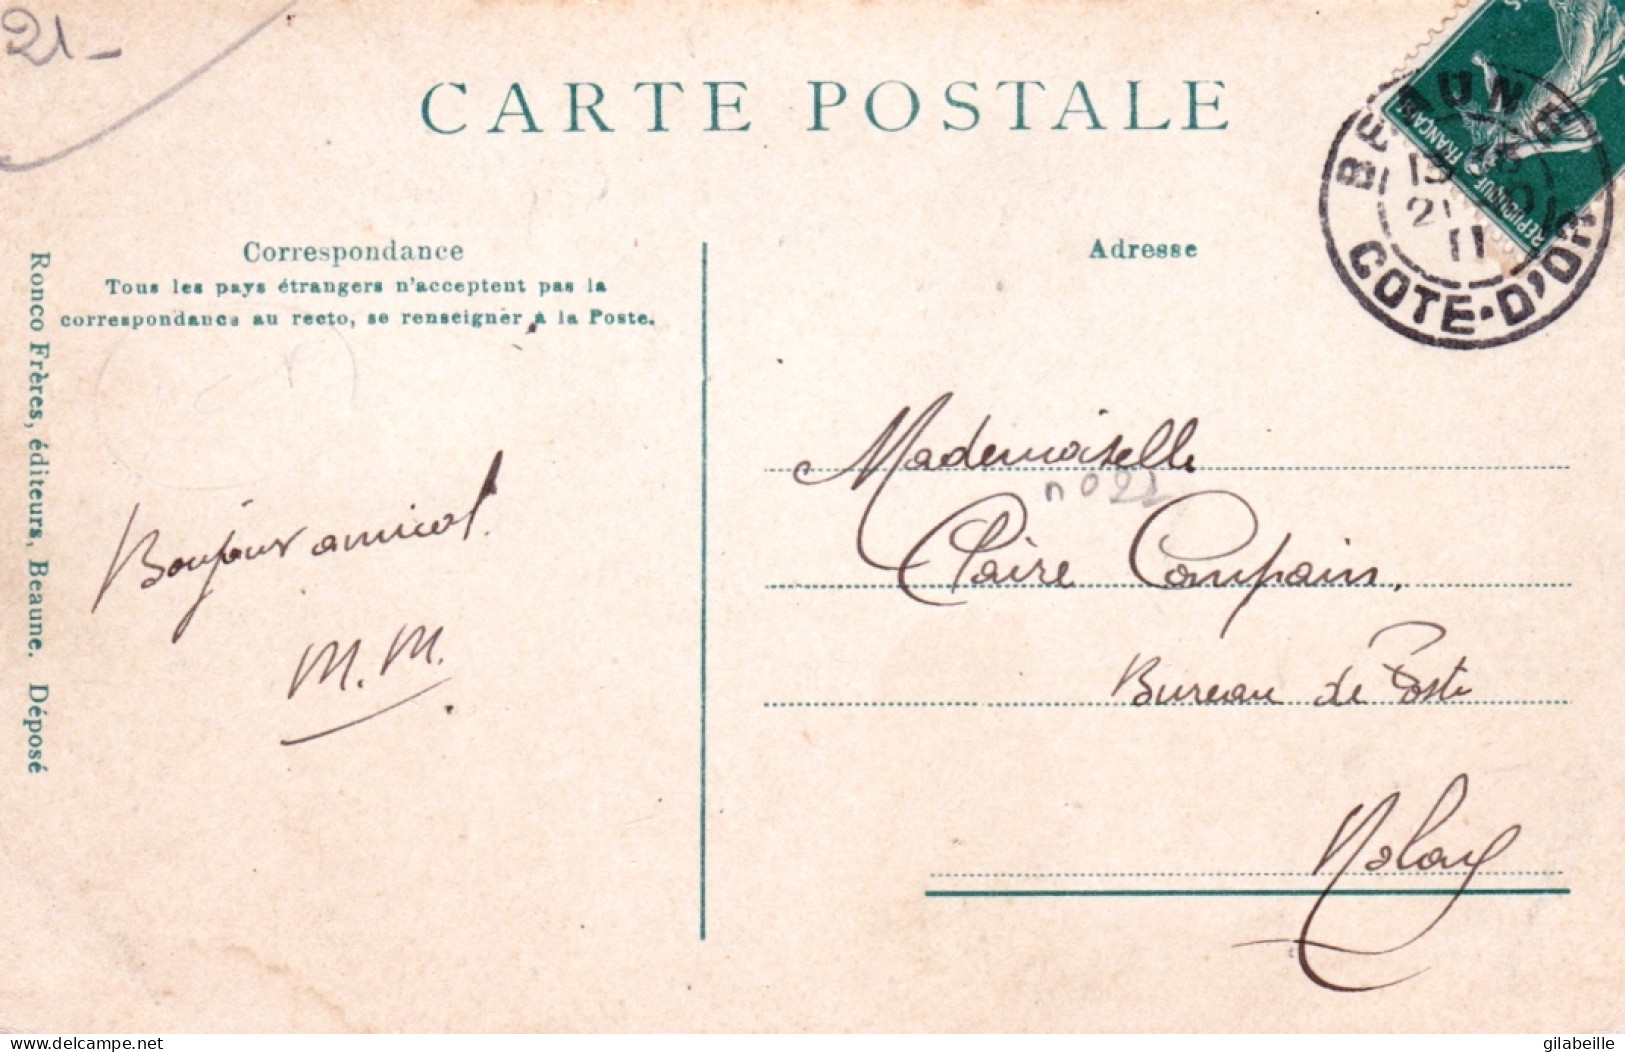 21-
CARTE POSTALE
Correspondance
Tous les pays étrangers n'acceptent pas la
correspondance au recto, se renseigner à la Poste.
Adresse
BEAUNE
21
11
COTE-D'OR
REPUBLIQUE FRANÇAISE
Ronco Frères, éditeurs, Beaune. Déposé
Bonjour amical.
M. M.
Mademoiselle
n° 22
Claire Compain,
Bureau de Poste
Nolay
delcampe.net
gilabeille